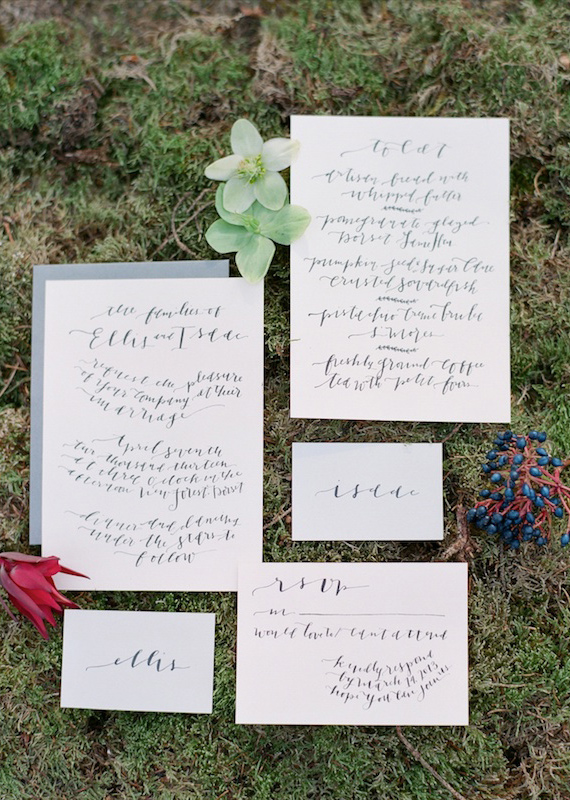 the families of
Ellis and Isaac
request the pleasure
of your company at their
marriage
April seventh
two thousand thirteen
at three o'clock in the
afternoon New Forest Dorset
dinner and dancing
under the stars to
follow
to eat
artisan bread with
whipped butter
pomegranate glazed
Dorset
pumpkin seed & sugar cane
crusted swordfish
pistachio creme brulee
s'mores
freshly ground coffee
tea with petit fours
isaac
rsvp
m
would love to / can't attend
kindly respond
by march 14, 2013
hope you can join us
ellis